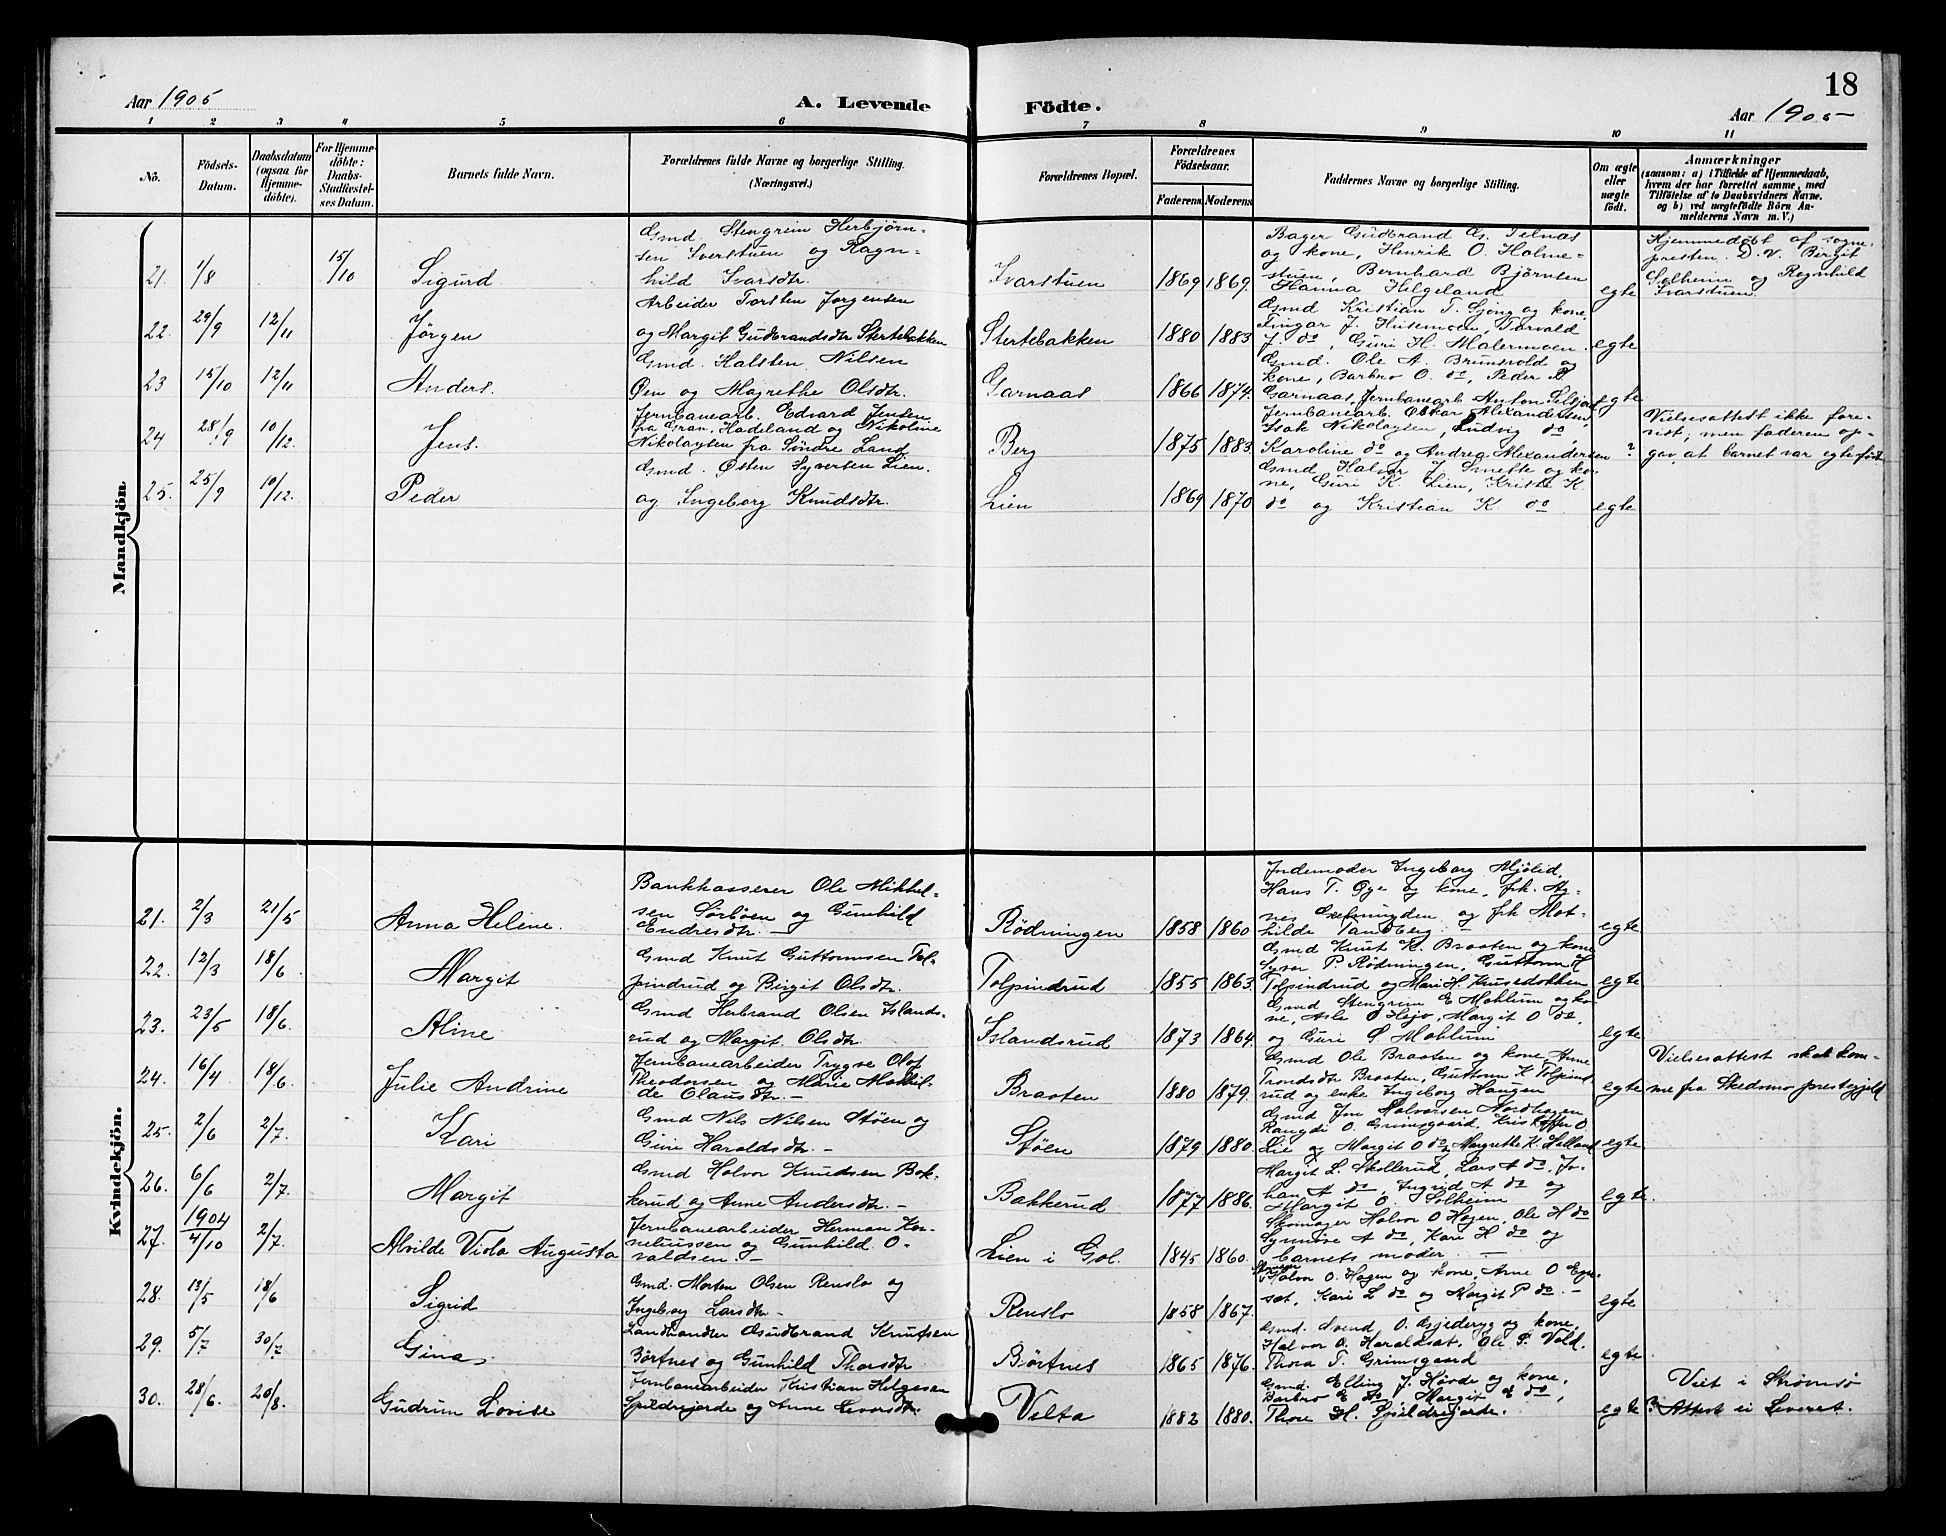 18
Aar 1905
A. Levende Födte.
Aar 1905
1 2 3 4 5 6 7 8 9 10 11
No.
Födsels-Datum.
Daabsdatum (ogsaa for Hjemme-döbte).
For Hjemme-döbte: Daabs-Stadfæstel-ses Datum.
Barnets fulde Navn.
Forældrenes fulde Navne og borgerlige Stilling. (Næringsvei.)
Forældrenes Bopæl.
Forældrenes Födselsaar.
Faderens
Moderens
Faddernes Navne og borgerlige Stilling.
Om ægte eller uægte födt.
Anmærkninger
(saasom: a) i Tilfælde af Hjemmedaab,
hvem der har forrettet samme, med
Tilföielse af to Daabsvidners Navne.
og b) ved uægtefödte Börn An-
melderens Navn m. V.)
Mandkjön.
21. 1/8 15/10 Sigurd
Gmd. Stengrim Herbjörn-
sen Iverstuen og Ragn-
hild Ivarsdtr.
Ivarstuen 1869 1869.
Bager Gudbrand G. Telnas
og kone, Henrik O. Halme-
stuen, Bernhard Björnsen
Hanna Helgeland
egte
Hjemmedöbt af sogne-
presten. D. V. Bergit
Solheim og Ragnhild
Ivarstuen.
22. 29/9 12/11 Jörgen
Arbeider Torsten Jorgensen
og Margit Gudbrandsdtr Stertebakken
Stertebakken 1880 1883
Gmd Kristian T. Gjöng og kone,
Fingar J. Husemoen, Torvald
J. do, Guri H. Malermoen.
egte
23 15/10 12/11 Anders.
Gmd. Halsten Nilsen
Öen og Magrethe Olsdtr.
Garnaas 1866 1874.
Gmd. Ole A. Brunsvold og
kone, Barbro O. do, Peder
Garnaas, Jernbanearb Anton
egte
24 28/9 10/12. Jens.
Jernbanearb. Edvard Jensen
fra Gran, Hadeland og Nikoline
Nikolaysen fra Söndre Land.
Berg 1875 1883.
Jernbanearb. Oskar Alexandersen,
Isak Nikolaysen, Ludvig do,
Karoline do og Andrea Alexandersen
?
Vielsesattest ikke fore-
vist; men faderen op-
gav, at barnet var egtefödt
25. 25/9 10/12. Peder
Gmd. Östen Syversen Lien.
og Ingeborg Knudsdtr.
Lien 1869 1870
Gmd Halvor J. Smette og ko-
ne, Guri K. Lien, Kristi K.
do og Kristian K. do.
egte
Kvindekjön.
21. 2/3 21/5 Anna Helene.
Bankkasserer Ole Mikkel-
sen Sörböen og Gunhild
Endresdtr. —
Rödningen 1858 1860
Jordemoder Ingeborg Mjölid,
Hans T. Öye og kone, frk. Ag-
nes og frk Mat-
hilde Tandberg. —
egte
22. 12/3 18/6 Margit
Gmd Knut Guttormsen Tol-
pindrud og Birgit Olsdtr.
Tolpindrud 1855 1863
Gmd Knut K. Braaten og kone
Syver P. Rödningen, Guttorm K
Tolpindrud og Mari H. Kusedokken
egte
23. 23/5 18/6. Aline
Gmd Herbrand Olsen Islands-
rud og Margit Olsdtr.
Islandsrud 1873 1864.
Gmd Stengrim E Mohlum og ko-
ne, Asle O Hejo, Margit O do,
og Guri O Mohlum
egte
24. 16/4 18/6. Julie Andrine
Jernbanearbeider Trygve Olaf
Theodorsen og Marie Mathil-
de Olausdtr. —
Braaten 1880 1879.
Gmd Ole Braaten og kone, Anne
Trondsdtr Braaten, Guttorm K Tolpind-
rud og enke Ingeborg Haugen
egte
Vielsesattest skal kom-
me fra Skedsmo prestegjeld
25. 2/6 2/7. Kari
Gmd Nils Nilsen Stöen og
Guri Haraldsdtr. —
Stöen 1879 1880.
Gmd Jon Halvorsen Nordhagen
Rangdi O. Grimsgaard, Kristoffer O.
Lie og Margit O do, Margrethe K. Halland
egte
26. 6/6 2/7. Margit
Gmd Halvor Knudsen Bak-
kerud og Anne Andersdtr. —
Bakkerud 1877 1886.
Margit L. Skollerud, Lars A do, Jo-
han A do, Ingrid A do og
Margit O. Solheim
egte.
27. 1904 4/10 2/7. Alvilde Viola Augusta
Jernbanearbeider Herman Kor-
neliussen og Gunhild O-
valdsen. —
Lien i Gol. 1845 1860.
Skomager Halvor O Hagen, Ole H do
Synnöve A do, Kari H do og
barnets moder. —
28. 13/5 18/6 Sigrid
Gmd. Morten Olsen Renslo og
Ingeborg Larsdtr. —
Renslo 1858 1867.
Halvor O. Hagen og kone, Arne O
set, Kari L do og Margit P do. —
egte
29. 5/7 30/7 Gina
Landhandler Gudbrand Knutsen
Börtnes og Gunhild Thorsdtr
Börtnes 1865 1876.
Gmd. Svend O. Gjederyg og kone,
Halvor O. Haraldset, Ole P. Vold,
Thora T. Grimsgaard
egte
30. 28/6. 20/8. Gudrun Lovise
Jernbanearbeider Kristian Helgesen
Spildrejorde og Anne
Velta 1882 1880.
Gmd. Elling J. Hovde og kone,
Barbro E do, Margit E do,
Thore H. Spildrejorde.
egte
Viet i Strömsö
Attest ei leveret.